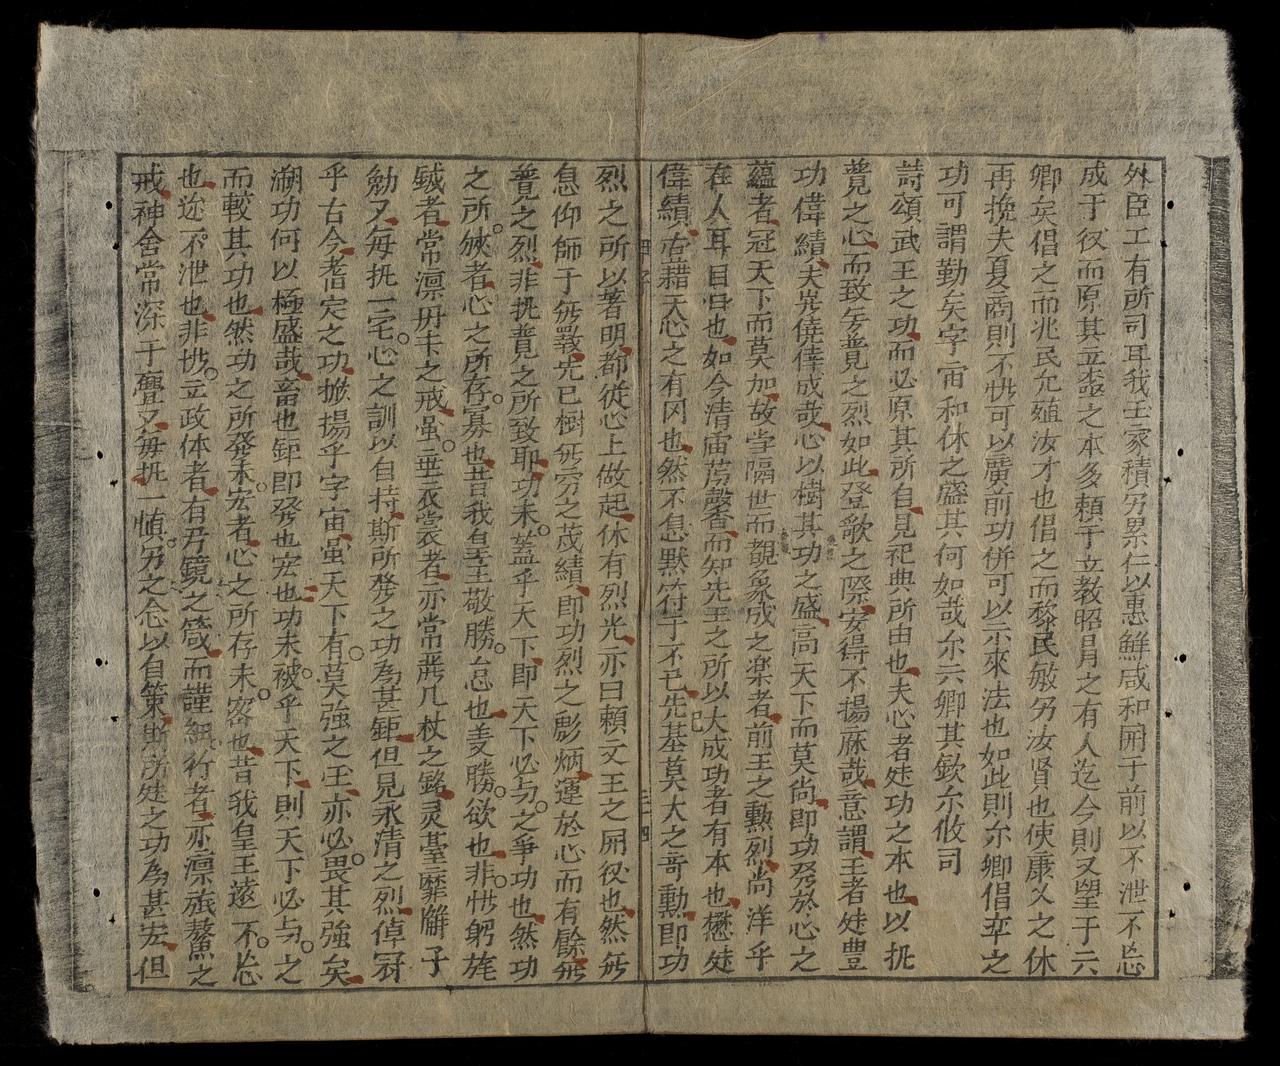 外臣工有所司耳我王家積另累仁以惠鮮咸和周于前以不泄不忘
成于後而原其立盃之本多賴于立教昭月之有人迄今則又望于六
卿矣倡之而兆民允殖汝才也倡之而黎民敏另汝賢也使康乂之休
再挽夫夏商則不恍可以廣前功併可以示來法也如此則尓卿倡率之
功可謂勤矣字宙和休之盛其何如哉尓六卿其欽尓攸司
詩頌武王之功而必原其所自見祀典所由也夫心者功之本也以执
竟之心而致旁竟之烈如此登歌之際安得不揚庥哉意謂王者豊
功偉績夫豈僥倖成哉心以樹其功之盛高天下而莫尚即功発於心之
蘊者冠天下而莫加故当隔世而覩象成之楽者前王之勳烈尚洋乎
在人耳目曰也如今清庙苾馨香而知先王之所以大成功者有本也懋
偉績壹藉天心之有冈也然不息黙符于不已先基莫大之竒勳即功
烈之所以著明都從心上做起休有烈光亦曰賴文王之開後也然
息仰師于先已樹穷之茂績即功烈之彪炳運於心而有餘
竟之烈非执竟之所致耶功未蓋乎天下即天下必与之爭功也然功
之所者心之所存寡也昔我皇王敬勝怠也羙勝欲也非恍躬旄
鉞者常凛丹未之戒虽垂衣裳者亦常凴几杖之銘灵䑓靡觧子
勉又每执一宅心之訓以自持斯所発之功為甚鉅但見永清之烈倬冠
乎古今耆定之功掀揚乎字宙虽天下有莫強之王亦必畏其強矣
溯功何以極盛哉畜也鉅即発也宏也功未被乎天下則天下必与之
而較其功也然功之所發未宏者心之所存未密也昔我皇王遠不忘
也迩不泄也非恍立政体者有丹鏡之箴而謹細行者亦凛旅獒之
戒神舍常深于亹又每执一慎另之念以自策斯所之功為甚宏但